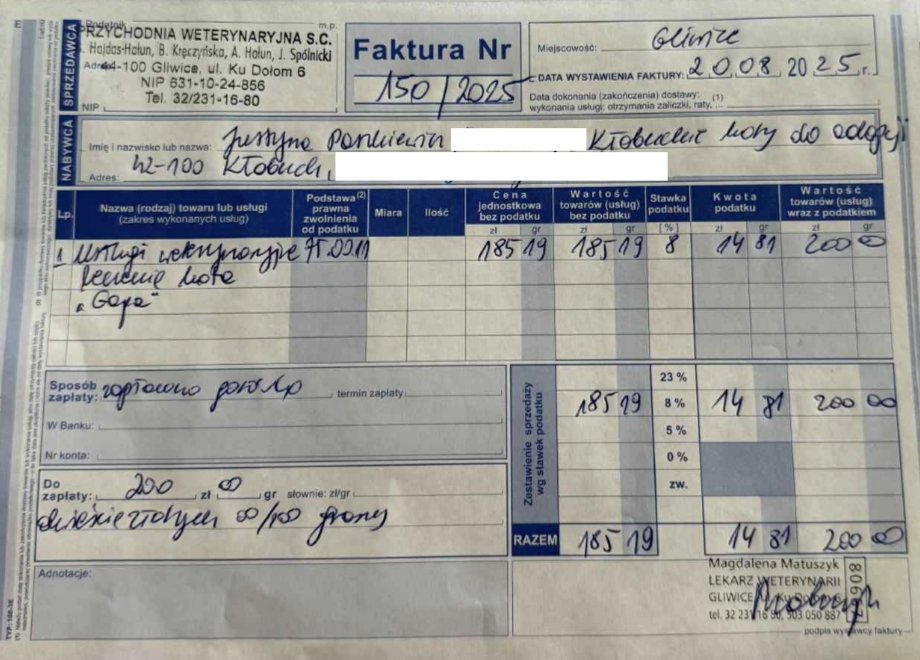 Podatnik
m.p.
PRZYCHODNIA WETERYNARYJNA S.C.
Hajdas-Hałun, B. Kręczyńska, A. Hałun, J. Spólnicki
44-100 Gliwice, ul. Ku Dołom 6
NIP 631-10-24-856
Tel. 32/231-16-80
SPRZEDAWCA
Adres:
NIP
Faktura Nr
150/2025
Miejscowość: Gliwice
DATA WYSTAWIENIA FAKTURY: 20.08 2025 r.
Data dokonania (zakończenia) dostawy: (1)
wykonania usługi; otrzymania zaliczki, raty.
NABYWCA
Imię i nazwisko lub nazwa: Justyna Kłobuckie koty do adopcji
Adres: 42-100 Kłobuck,
Lp. Nazwa (rodzaj) towaru lub usługi (zakres wykonanych usług) Podstawa(2) prawna zwolnienia od podatku Miara Ilość Cena jednostkowa bez podatku zł gr Wartość towarów (usług) bez podatku zł gr Stawka podatku [%] Kwota podatku zł gr Wartość towarów (usług) wraz z podatkiem zł gr
1 usługi weterynaryjne 75.00.11 185 19 185 19 8 14 81 200 00
leczenie kota
"Gapa"
Sposób zapłaty: zapłacono gotówką termin zapłaty
W Banku:
Nr konta:
Zestawienie sprzedaży wg stawek podatku
23 %
185 19 8 % 14 81 200 00
5 %
0 %
zw.
Do zapłaty: 200 zł 00 gr słownie: zł/gr
dwieście złotych 00/100 groszy
RAZEM 185 19 14 81 200 00
Adnotacje:
Magdalena Matuszyk
LEKARZ WETERYNARII
GLIWICE, ul. Ku Dołom 6
tel. 32 231 16 80, 503 050 887
podpis wystawcy faktury
TYP: 108-3E